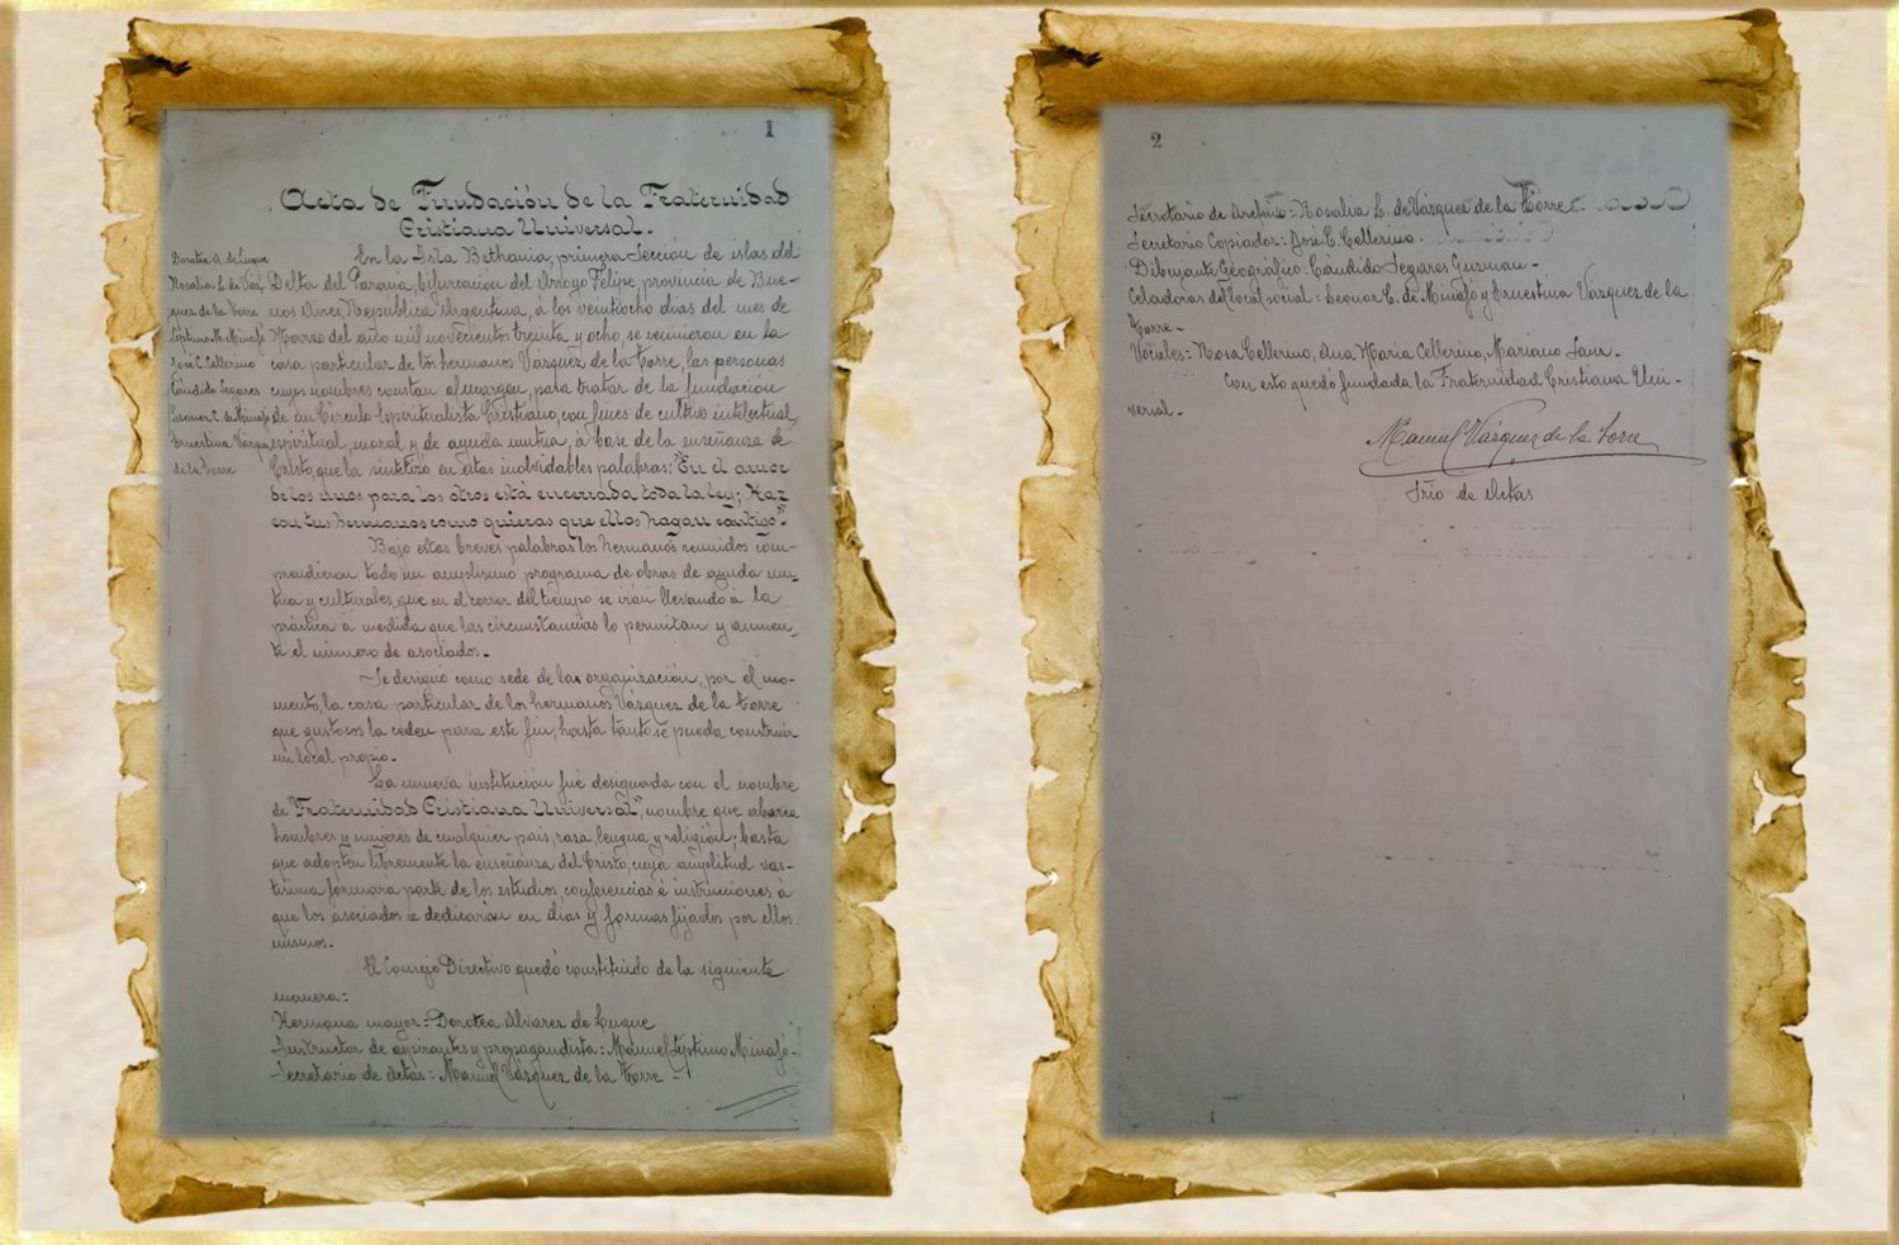 1
Acta de Fundación de la Fraternidad
Cristiana Universal.
Dorotea A. de Luque
Rosalia L. de Váz
quez de la Torre
Séptimo M. Minafó
José C. Cellerino
Cándido Segares
Leonor C. de Minafó
Ernestina Vázquez
de la Torre
En la Isla Bethania, primera Sección de islas del
Delta del Paraná, bifurcación del Arroyo Felipe, provincia de Bue-
nos Aires, República Argentina, á los veintiocho dias del mes de
Marzo del año mil novecientos treinta y ocho, se reunieron en la
casa particular de los hermanos Vázquez de la Torre, las personas
cuyos nombres constan al margen, para tratar de la fundación
de un Círculo Espiritualista Cristiano, con fines de cultivo intelectual,
espiritual, moral y de ayuda mutua, á base de la enseñanza de
Cristo, que la sintetizo en estas inolvidables palabras: "En el amor
de los unos para los otros está encerrada toda la ley; Haz
con tus hermanos como quieras que ellos hagan contigo".
Bajo estas breves palabras los hermanos reunidos com-
prendieron todo un amplisimo programa de obras de ayuda mu-
tua y culturales, que en el correr del tiempo se irán llevando á la
práctica á medida que las circunstancias lo permitan y aumen-
te el número de asociados.
Se designó como sede de la organización, por el mo-
mento, la casa particular de los hermanos Vázquez de la Torre
que gustosos la ceden para este fin, hasta tanto se pueda construir
un local propio.
La nueva institución fué designada con el nombre
de "Fraternidad Cristiana Universal", nombre que abarca
hombres y mujeres de cualquier pais, raza, lengua y religión; basta
que adopten libremente la enseñanza del Cristo, cuya amplitud vas-
tisima formará parte de los estudios conferencias é instrucciones á
que los asociados se dedicarian en dias y formas fijados por ellos
mismos.
El Consejo Directivo quedó constituido de la siguiente
manera:
Hermana mayor: Dorotea Alvarez de Luque
Instructor de aspirantes y propagandista: Manuel Séptimo Minafó-
Secretario de Actas: Manuel Vázquez de la Torre -
2
Secretario de Archivo: Rosalia L. de Vázquez de la Torre
Secretario Copiador: José C. Cellerino.
Dibujante Geográfico: Cándido Segares Guzman -
Celadoras del local social: Leonor C. de Minafó y Ernestina Vázquez de la
Torre-
Vocales: Rosa Cellerino, Ana Maria Cellerino, Mariano Sanz-
Con esto quedó fundada la Fraternidad Cristiana Uni-
versal-
Manuel Vázquez de la Torre
Srio de Actas